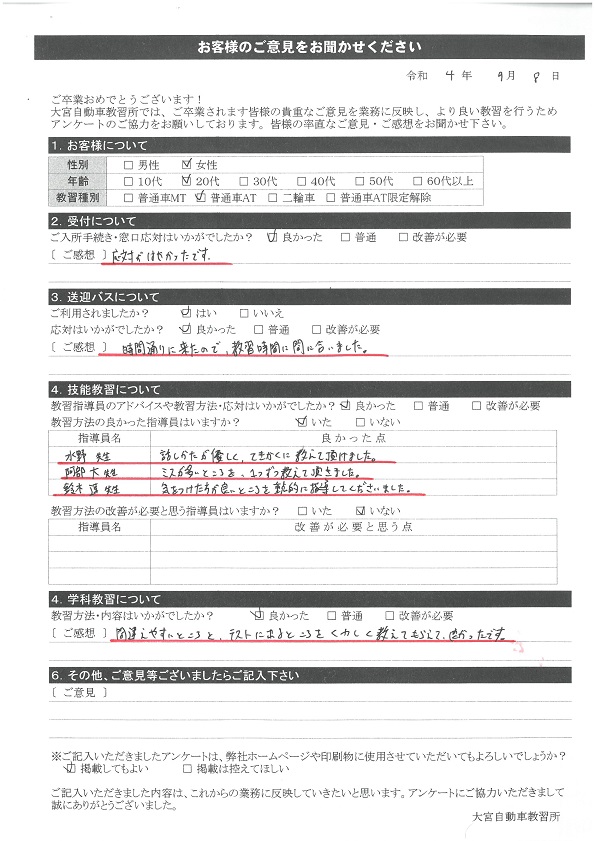 お客様のご意見をお聞かせください
令和 4 年 9 月 8 日
ご卒業おめでとうございます！
大宮自動車教習所では、ご卒業されます皆様の貴重なご意見を業務に反映し、より良い教習を行うため
アンケートのご協力をお願いしております。皆様の率直なご意見・ご感想をお聞かせ下さい。
1. お客様について
性別 □ 男性 ☑ 女性
年齢 □ 10代 ☑ 20代 □ 30代 □ 40代 □ 50代 □ 60代以上
教習種別 □ 普通車MT ☑ 普通車AT □ 二輪車 □ 普通車AT限定解除
2. 受付について
ご入所手続き・窓口応対はいかがでしたか？ ☑ 良かった □ 普通 □ 改善が必要
［ ご感想 ］ 応対がはやかったです。
3. 送迎バスについて
ご利用されましたか？ ☑ はい □ いいえ
応対はいかがでしたか？ ☑ 良かった □ 普通 □ 改善が必要
［ ご感想 ］ 時間通りに来たので、教習時間に間に合いました。
4. 技能教習について
教習指導員のアドバイスや教習方法・応対はいかがでしたか？ ☑ 良かった □ 普通 □ 改善が必要
教習方法の良かった指導員はいますか？ ☑ いた □ いない
指導員名 良かった点
水野 先生 話しかたが優しく、てきかくに教えて頂けました。
阿部 大 先生 ミスが多いところを、1つずつ教えて頂きました。
鈴木 先生 気をつけたら方が良いところを動的に指導してくださいました。
教習方法の改善が必要と思う指導員はいますか？ □ いた ☑ いない
指導員名 改善が必要と思う点
4. 学科教習について
教習方法・内容はいかがでしたか？ ☑ 良かった □ 普通 □ 改善が必要
［ ご感想 ］ 間違えやすいところと、テストにでるところをくわしく教えてもらえて、良かったです。
6. その他、ご意見等ございましたらご記入下さい
［ ご意見 ］
※ご記入いただきましたアンケートは、弊社ホームページや印刷物に使用させていただいてもよろしいでしょうか？
☑ 掲載してもよい □ 掲載は控えてほしい
ご記入いただきました内容は、これからの業務に反映していきたいと思います。アンケートにご協力いただきまして
誠にありがとうございました。
大宮自動車教習所